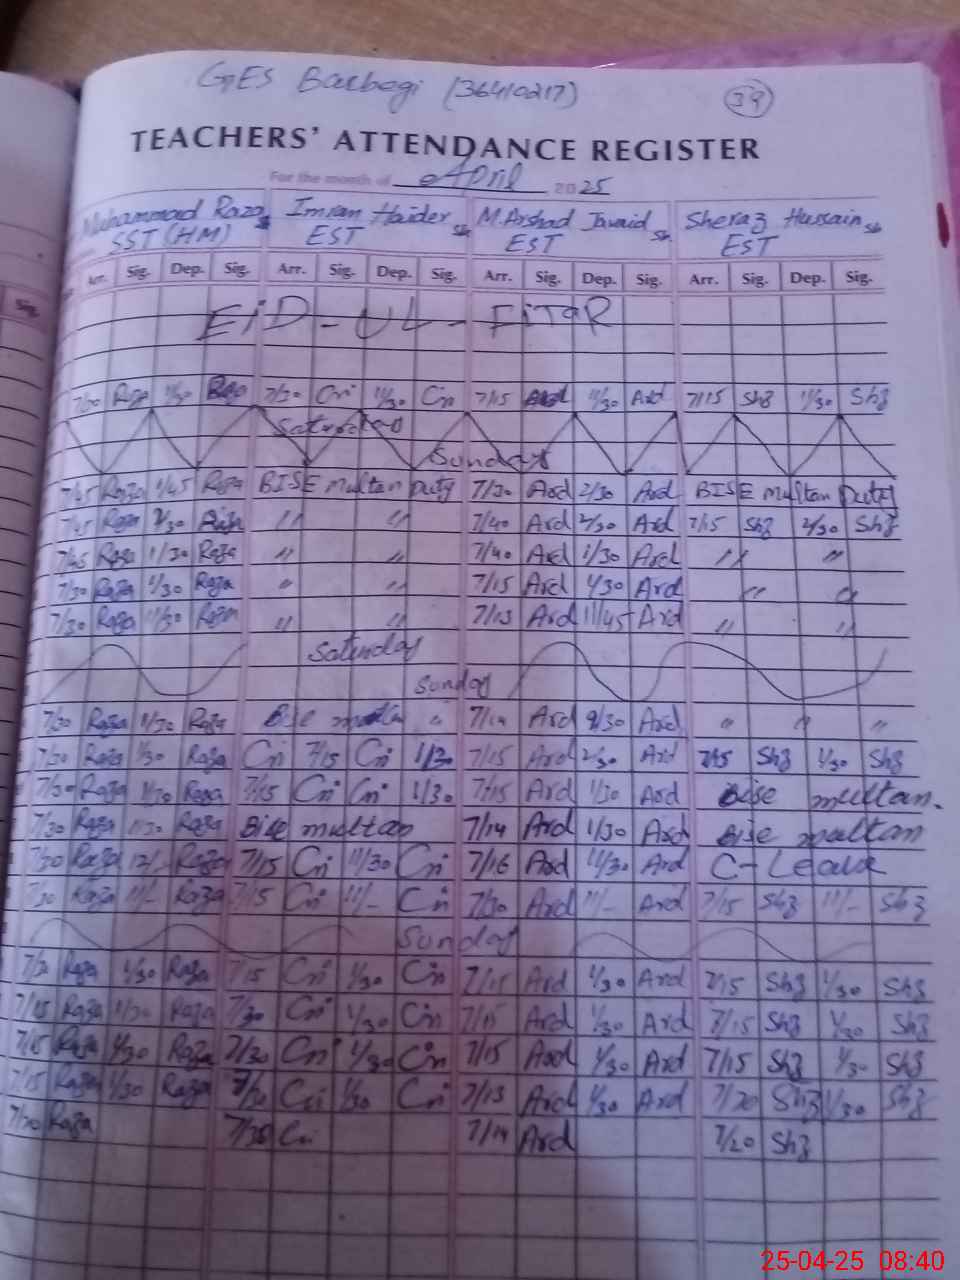 GES Balbegi (36410217) 39
TEACHERS' ATTENDANCE REGISTER
For the month of April 2025
Muhammad Raza Imran Haider M.Arshad Javaid Sheraz Hussain
SST (HM) EST EST EST
Arr. Sig. Dep. Sig. Arr. Sig. Dep. Sig. Arr. Sig. Dep. Sig. Arr. Sig. Dep. Sig.
Sig.
EiD-UL-FiTaR
7/30 Raza 11/30 Raza 7/30 Cri 11/30 Cri 7/15 Ard 11/30 Ard 7/15 Shz 11/30 Shz
Saturday
Sunday
7/45 Raza 1/45 Raza BISE multan Duty 7/30 Ard 2/30 Ard BISE multan Duty
7/45 Raza 2/30 " " 7/40 Ard 2/30 Ard 7/15 Shz 2/30 Shz
7/45 Raza 1/30 Raza " " 7/40 Ard 1/30 Ard " "
7/30 Raza 1/30 Raza " " 7/15 Ard 1/30 Ard " "
7/30 Raza 11/30 Raza " " 7/13 Ard 11/45 Ard " "
Saturday
Sunday
7/30 Raza 1/30 Raza Bise multan " 7/14 Ard 2/30 Ard " " "
7/30 Raza 1/30 Raza Cri 7/15 Cri 1/30 7/15 Ard 2/30 Ard 7/15 Shz 1/30 Shz
7/30 Raza 1/30 Raza 7/15 Cri Cri 1/30 7/15 Ard 1/30 Ard Bise multan.
7/30 Raza 1/30 Raza Bise multan 7/14 Ard 1/30 Ard Bise multan
7/30 Raza 12/- Raza 7/15 Cri 11/30 Cri 7/16 Ard 11/30 Ard C-Leave
7/30 Raza 11/- Raza 7/15 Cri 11/- Cri 7/30 Ard 11/- Ard 7/15 Shz 11/- Shz
Sunday
7/30 Raza 1/30 Raza 7/15 Cri 1/30 Cri 7/15 Ard 1/30 Ard 7/15 Shz 1/30 Shz
7/15 Raza 1/30 Raza 7/30 Cri 1/30 Cri 7/15 Ard 1/30 Ard 7/15 Shz 1/30 Shz
7/15 Raza 1/30 Raza 7/30 Cri 1/30 Cri 7/15 Ard 1/30 Ard 7/15 Shz 1/30 Shz
7/15 Raza 1/30 Raza 7/30 Cri 1/30 Cri 7/13 Ard 1/30 Ard 7/20 Shz 1/30 Shz
7/20 Raza 7/25 Cri 7/14 Ard 7/20 Shz
25-04-25 08:40